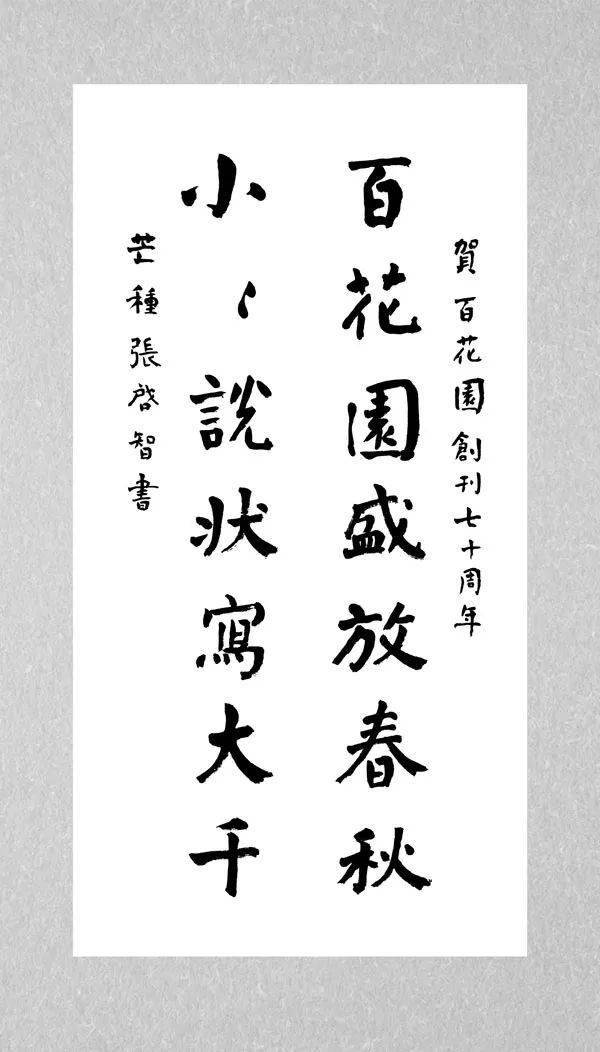 賀百花園創刊七十周年
百花園盛放春秋
小〻説状寫大千
芒種張啓智書